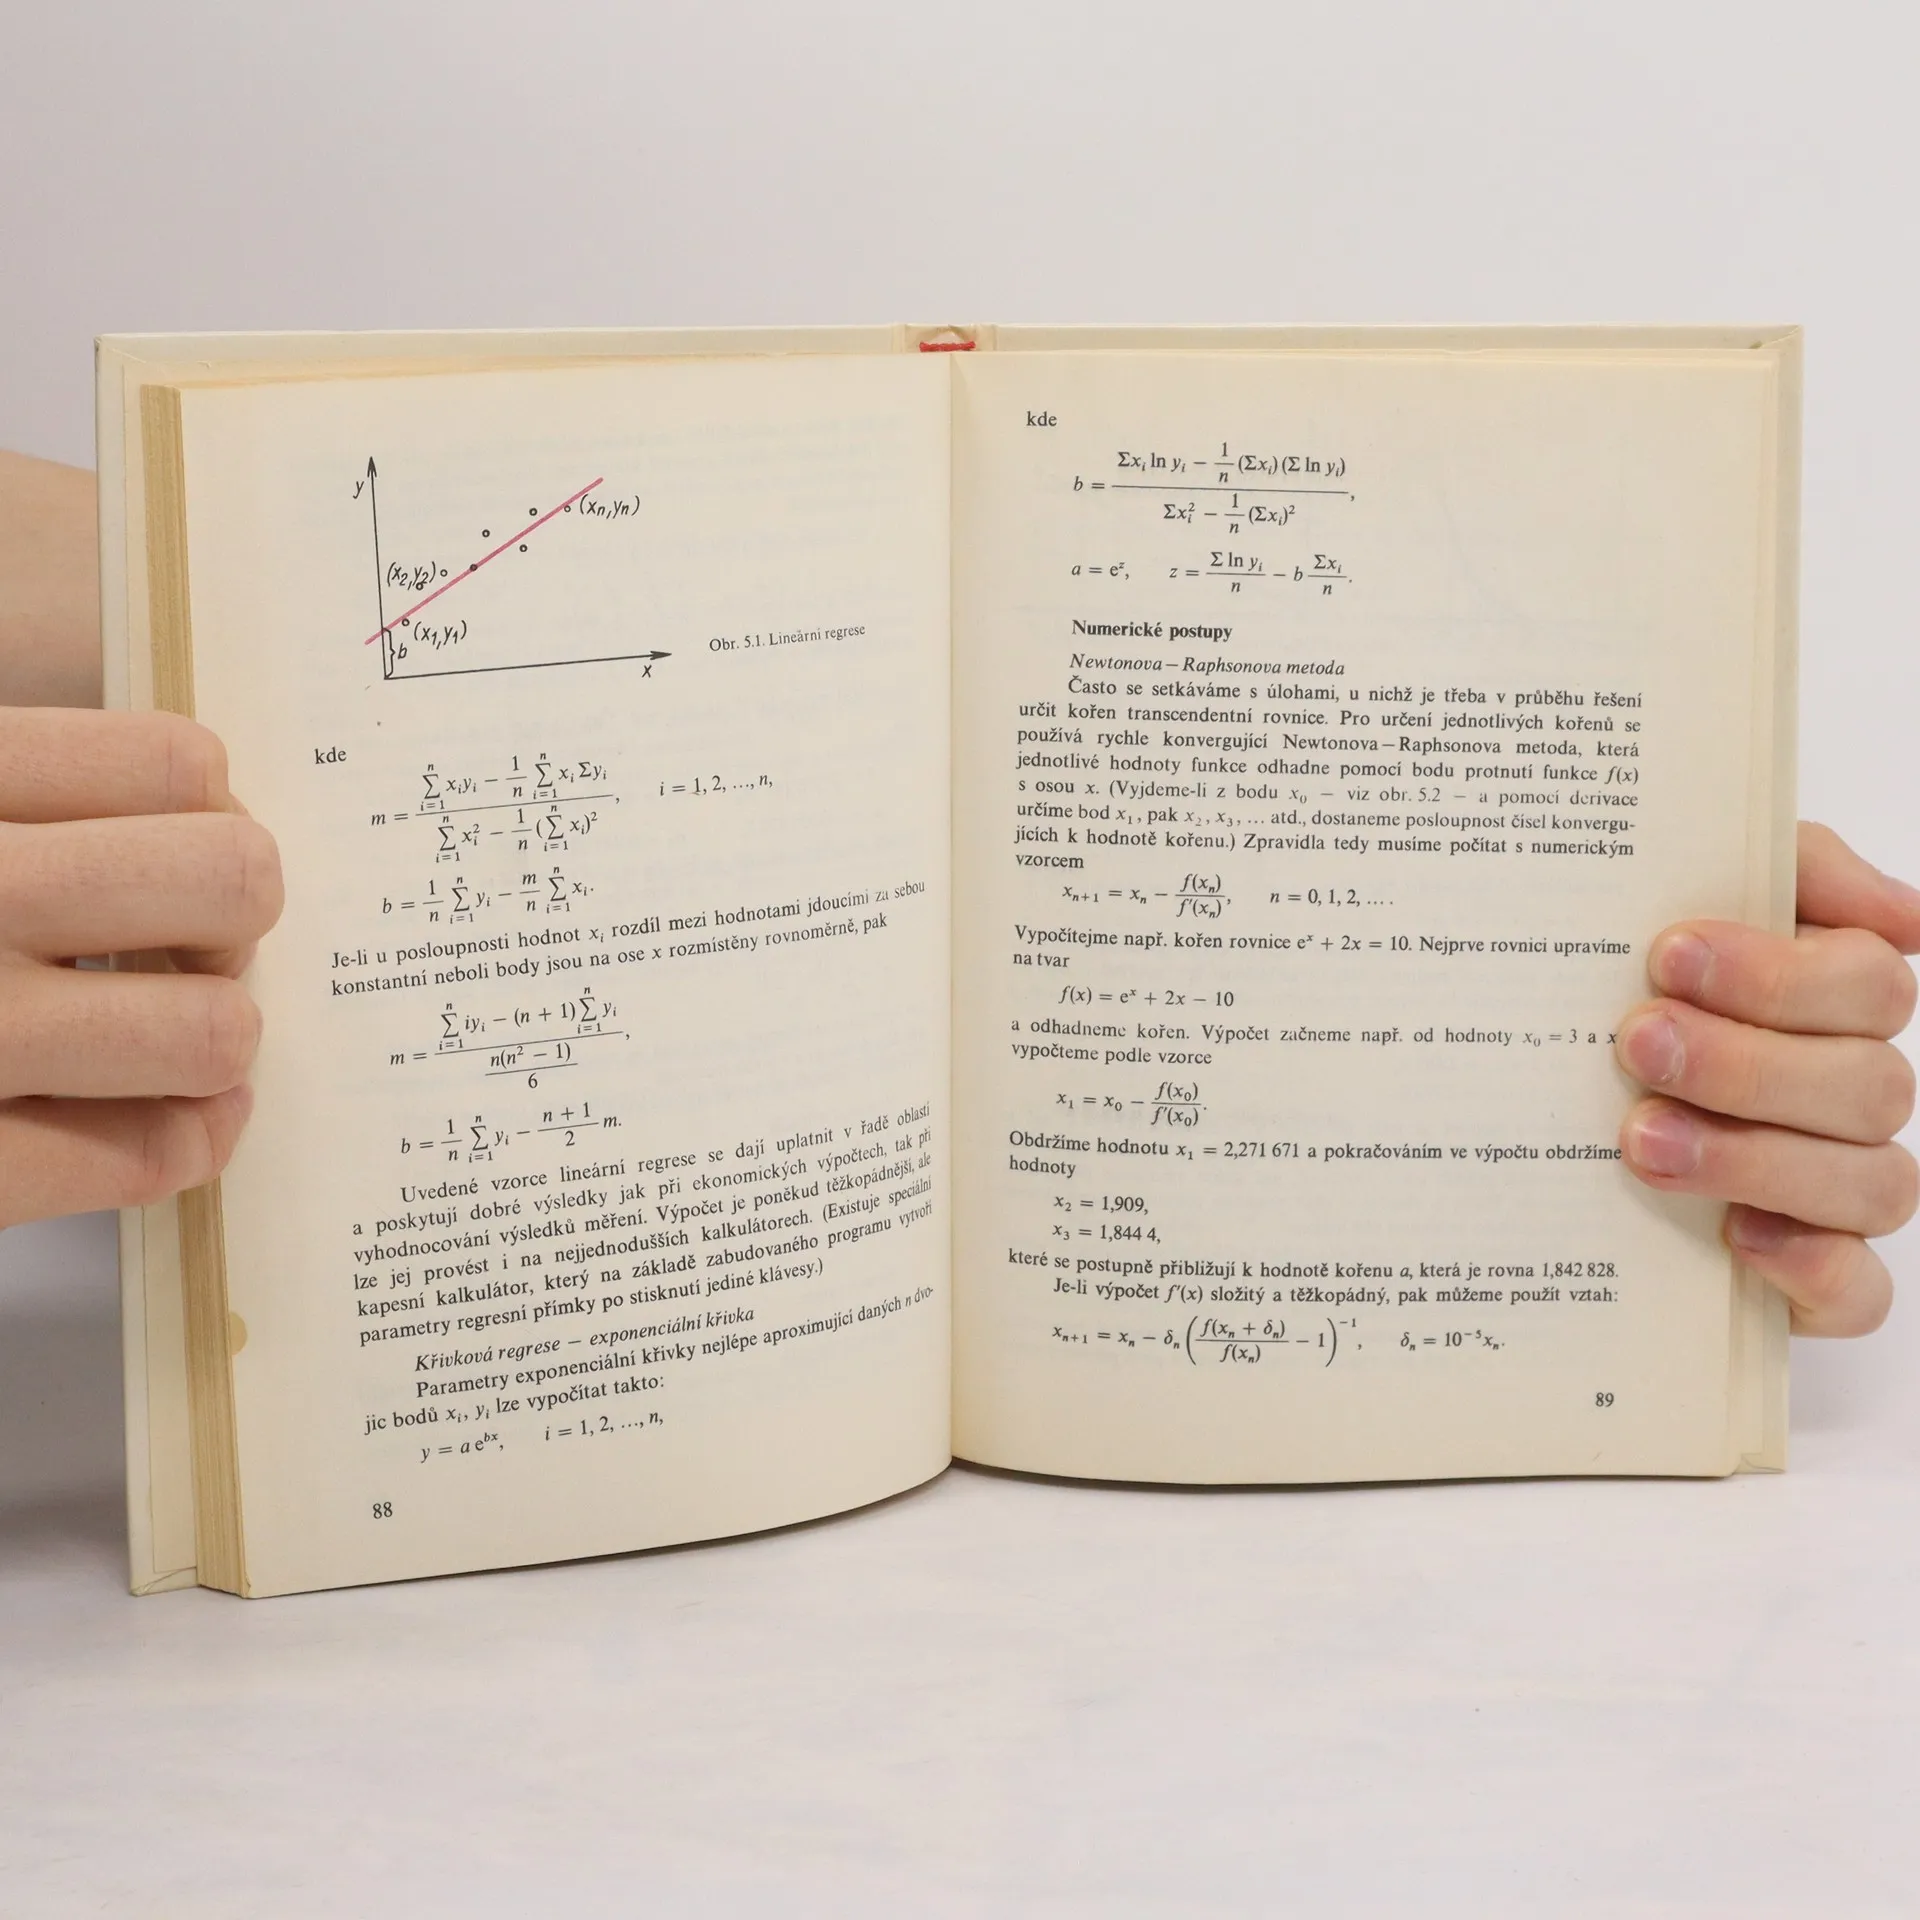 y
(xn,yn)
(x2,y2)
(x1,y1)
b
x
Obr. 5.1. Lineární regrese
kde
m = \frac{\sum_{i=1}^{n} x_i y_i − \frac{1}{n} \sum_{i=1}^{n} x_i Σy_i}{\sum_{i=1}^{n} x_i^2 − \frac{1}{n} (\sum_{i=1}^{n} x_i)^2}, i = 1, 2, ..., n,
b = \frac{1}{n} \sum_{i=1}^{n} y_i − \frac{m}{n} \sum_{i=1}^{n} x_i.
Je-li u posloupnosti hodnot x_i rozdíl mezi hodnotami jdoucími za sebou
konstantní neboli body jsou na ose x rozmístěny rovnoměrně, pak
m = \frac{\sum_{i=1}^{n} iy_i − (n + 1) \sum_{i=1}^{n} y_i}{\frac{n(n^2 − 1)}{6}},
b = \frac{1}{n} \sum_{i=1}^{n} y_i − \frac{n + 1}{2} m.
Uvedené vzorce lineární regrese se dají uplatnit v řadě oblastí
a poskytují dobré výsledky jak při ekonomických výpočtech, tak při
vyhodnocování výsledků měření. Výpočet je poněkud těžkopádnější, ale
lze jej provést i na nejjednodušších kalkulátorech. (Existuje speciální
kapesní kalkulátor, který na základě zabudovaného programu vytvoří
parametry regresní přímky po stisknutí jediné klávesy.)
Křivková regrese — exponenciální křivka
Parametry exponenciální křivky nejlépe aproximující daných n dvo-
jic bodů x_i, y_i lze vypočítat takto:
y = a e^{bx}, i = 1, 2, ..., n,
88
kde
b = \frac{Σx_i ln y_i − \frac{1}{n} (Σx_i) (Σ ln y_i)}{Σx_i^2 − \frac{1}{n} (Σx_i)^2},
a = e^z, z = \frac{Σ ln y_i}{n} − b \frac{Σx_i}{n}.
Numerické postupy
Newtonova — Raphsonova metoda
Často se setkáváme s úlohami, u nichž je třeba v průběhu řešení
určit kořen transcendentní rovnice. Pro určení jednotlivých kořenů se
používá rychle konvergující Newtonova—Raphsonova metoda, která
jednotlivé hodnoty funkce odhadne pomocí bodu protnutí funkce f(x)
s osou x. (Vyjdeme-li z bodu x_0 — viz obr. 5.2 — a pomocí derivace
určíme bod x_1, pak x_2, x_3, ... atd., dostaneme posloupnost čísel konvergu-
jících k hodnotě kořenu.) Zpravidla tedy musíme počítat s numerickým
vzorcem
x_{n+1} = x_n − \frac{f(x_n)}{f'(x_n)}, n = 0, 1, 2, ....
Vypočítejme např. kořen rovnice e^x + 2x = 10. Nejprve rovnici upravíme
na tvar
f(x) = e^x + 2x − 10
a odhadneme kořen. Výpočet začneme např. od hodnoty x_0 = 3 a x
vypočteme podle vzorce
x_1 = x_0 − \frac{f(x_0)}{f'(x_0)}.
Obdržíme hodnotu x_1 = 2,271 671 a pokračováním ve výpočtu obdržíme
hodnoty
x_2 = 1,909,
x_3 = 1,844 4,
které se postupně přibližují k hodnotě kořenu a, která je rovna 1,842 828.
Je-li výpočet f'(x) složitý a těžkopádný, pak můžeme použít vztah:
x_{n+1} = x_n − δ_n \left( \frac{f(x_n + δ_n)}{f(x_n)} − 1 \right)^{−1}, δ_n = 10^{−5}x_n.
89